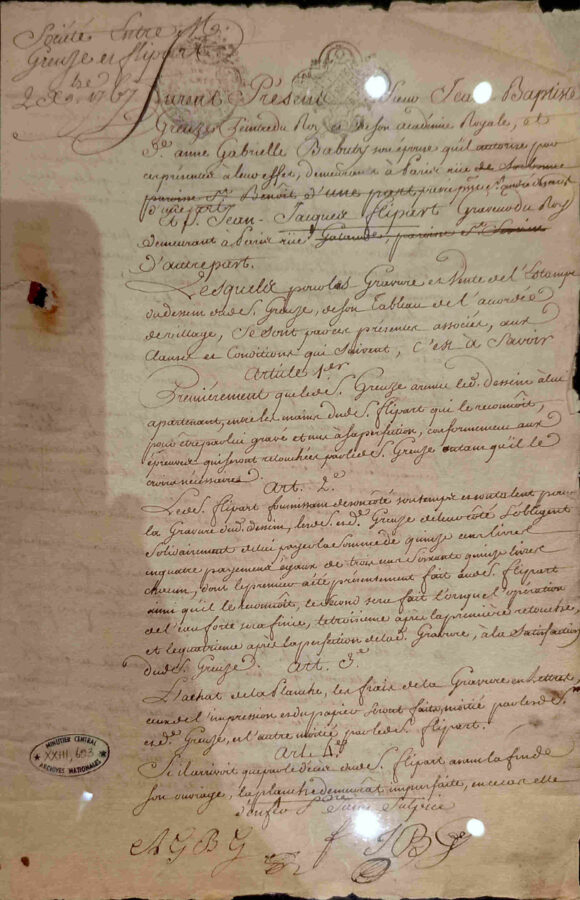 Société Entre M.
Greuze et flipart
2 Xbre 1767
Furent Présent Sieur Jean Baptiste
Greuze Peintre du Roy et de son academie Royale, et
De. anne Gabrielle Babuty son épouse qu'il autorise pour
ces presentes a leur effet, demeurant à Paris rue de Sorbonne
paroisse St. Benoît d'une part,
d'une part,
Et S. Jean-Jacques flipart Graveur du Roy
demeurant a Paris rue Galande, paroisse St. Severin
D'autre part.
Lesquels pour la Gravure et Vente de l'Estampe
du dessin dud. S. Greuze, de son Tableau de l'accordée
de village, se sont par ces présentes associés, aux
clauses et Conditions qui suivent, c'est à Savoir
Article 1er
Premièrement que led. S. Greuze a remis led. dessin à lui
apartenant, entre les mains dud. S. flipart qui le reconnoît,
pour être par lui gravé et mis a sa perfection, conformement aux
épreuves qui seront retouchées par led. S. Greuze autant qu'il le
croira necessaire.
Art. 2e
Led. S. flipart fournissant de son côté son temps et son talent pour
la Gravure dud. dessin, lesd. S. et De. Greuze de leur côté s'obligent
Solidairement de lui payer la Somme de quinze cent livres
en quatre payemens égaux de trois cent Soixante quinze livres
chacun, dont le premier a été présentement fait aud. S. flipart
ainsi qu'il le reconnoît, le second sera fait lorsque l'opération
de l'eau forte sera finie, le troisième après la première retouche,
et le quatrieme après la perfection de lad. Gravure, à la Satisfaction
dud. S. Greuze.
Art. 3e
L'achat de la Planche, les frais de la Gravure en Lettres,
ceux de l'impression et du papier seront faits, moitié par lesd. S.
et De. Greuze, et l'autre moitié par led. S. flipart.
Art. 4e
S'il arrivoit que par le décès dud. S. flipart avant la fin de
son ouvrage, la planche demeurât imparfaite, en ce cas elle
AGBG
f
JBG
MINUTIER CENTRAL
XXIII, 693
ARCHIVES NATIONALES